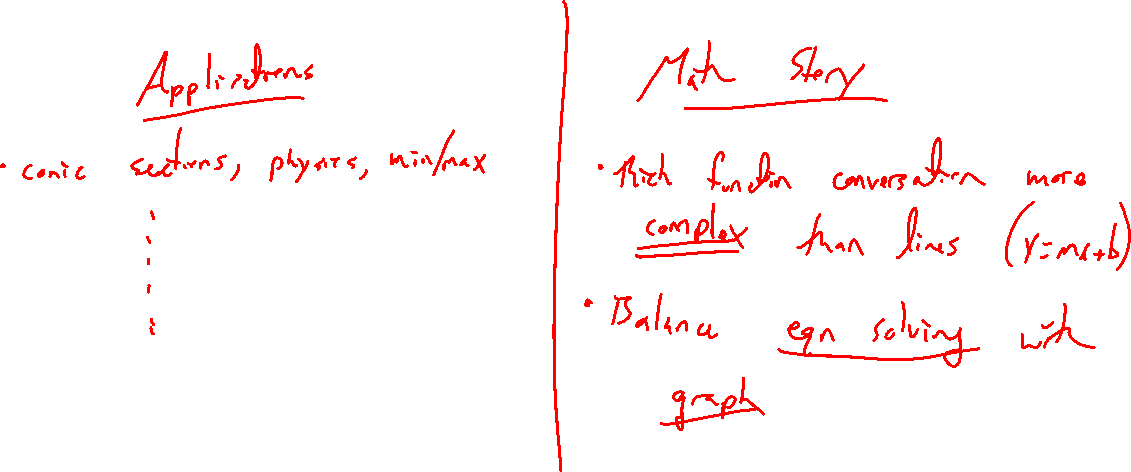 Applications
• conic sections, physics, min/max
Math Story
• Rich function conversation more
complex than lines (y=mx+b)
• Balance eqn solving with
graph